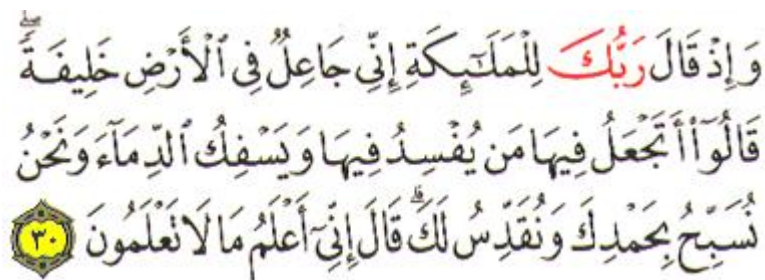 وَإِذْ قَالَ رَبُّكَ لِلْمَلَـٰٓئِكَةِ إِنِّى جَاعِلٌ فِى ٱلْأَرْضِ خَلِيفَةً ۖ
قَالُوٓا۟ أَتَجْعَلُ فِيهَا مَن يُفْسِدُ فِيهَا وَيَسْفِكُ ٱلدِّمَآءَ وَنَحْنُ
نُسَبِّحُ بِحَمْدِكَ وَنُقَدِّسُ لَكَ ۖ قَالَ إِنِّىٓ أَعْلَمُ مَا لَا تَعْلَمُونَ ٣٠